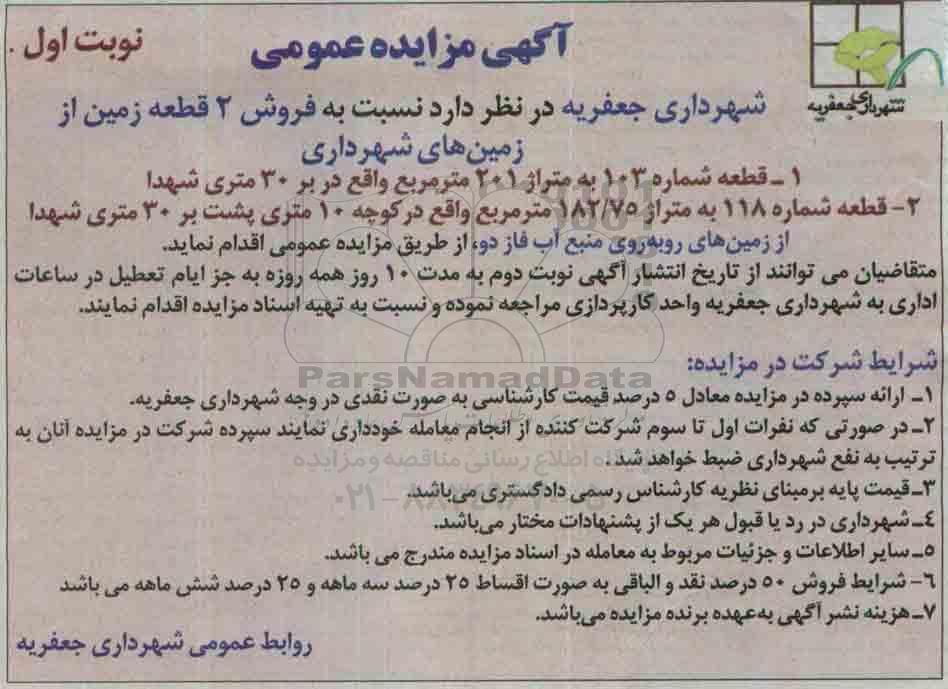 آگهی مزایده عمومی
نوبت اول .
شهرداری جعفریه
شهرداری جعفریه در نظر دارد نسبت به فروش ۲ قطعه زمین از
زمین‌های شهرداری
۱ ـ قطعه شماره ۱۰۳ به متراژ ۲۰۱ مترمربع واقع در بر ۳۰ متری شهدا
۲- قطعه شماره ۱۱۸ به متراژ ۱۸۲/۷۵ مترمربع واقع در کوچه ۱۰ متری پشت بر ۳۰ متری شهدا
از زمین‌های روبه‌روی منبع آب فاز دو، از طریق مزایده عمومی اقدام نماید.
متقاضیان می توانند از تاریخ انتشار آگهی نوبت دوم به مدت ۱۰ روز همه روزه به جز ایام تعطیل در ساعات
اداری به شهرداری جعفریه واحد کارپردازی مراجعه نموده و نسبت به تهیه اسناد مزایده اقدام نمایند.
شرایط شرکت در مزایده:
ParsNamadData
۱ـ ارائه سپرده در مزایده معادل ۵ درصد قیمت کارشناسی به صورت نقدی در وجه شهرداری جعفریه.
۲ـ در صورتی که نفرات اول تا سوم شرکت کننده از انجام معامله خودداری نمایند سپرده شرکت در مزایده آنان به
ترتیب به نفع شهرداری ضبط خواهد شد .
۳ـ قیمت پایه برمبنای نظریه کارشناس رسمی دادگستری می‌باشد.
٤ـ شهرداری در رد یا قبول هر یک از پشنهادات مختار می‌باشد.
۵ـ سایر اطلاعات و جزئیات مربوط به معامله در اسناد مزایده مندرج می باشد.
۶- شرایط فروش ۵۰ درصد نقد و الباقی به صورت اقساط ۲۵ درصد سه ماهه و ۲۵ درصد شش ماهه می باشد
۷ـ هزینه نشر آگهی به‌عهده برنده مزایده می‌باشد.
روابط عمومی شهرداری جعفریه